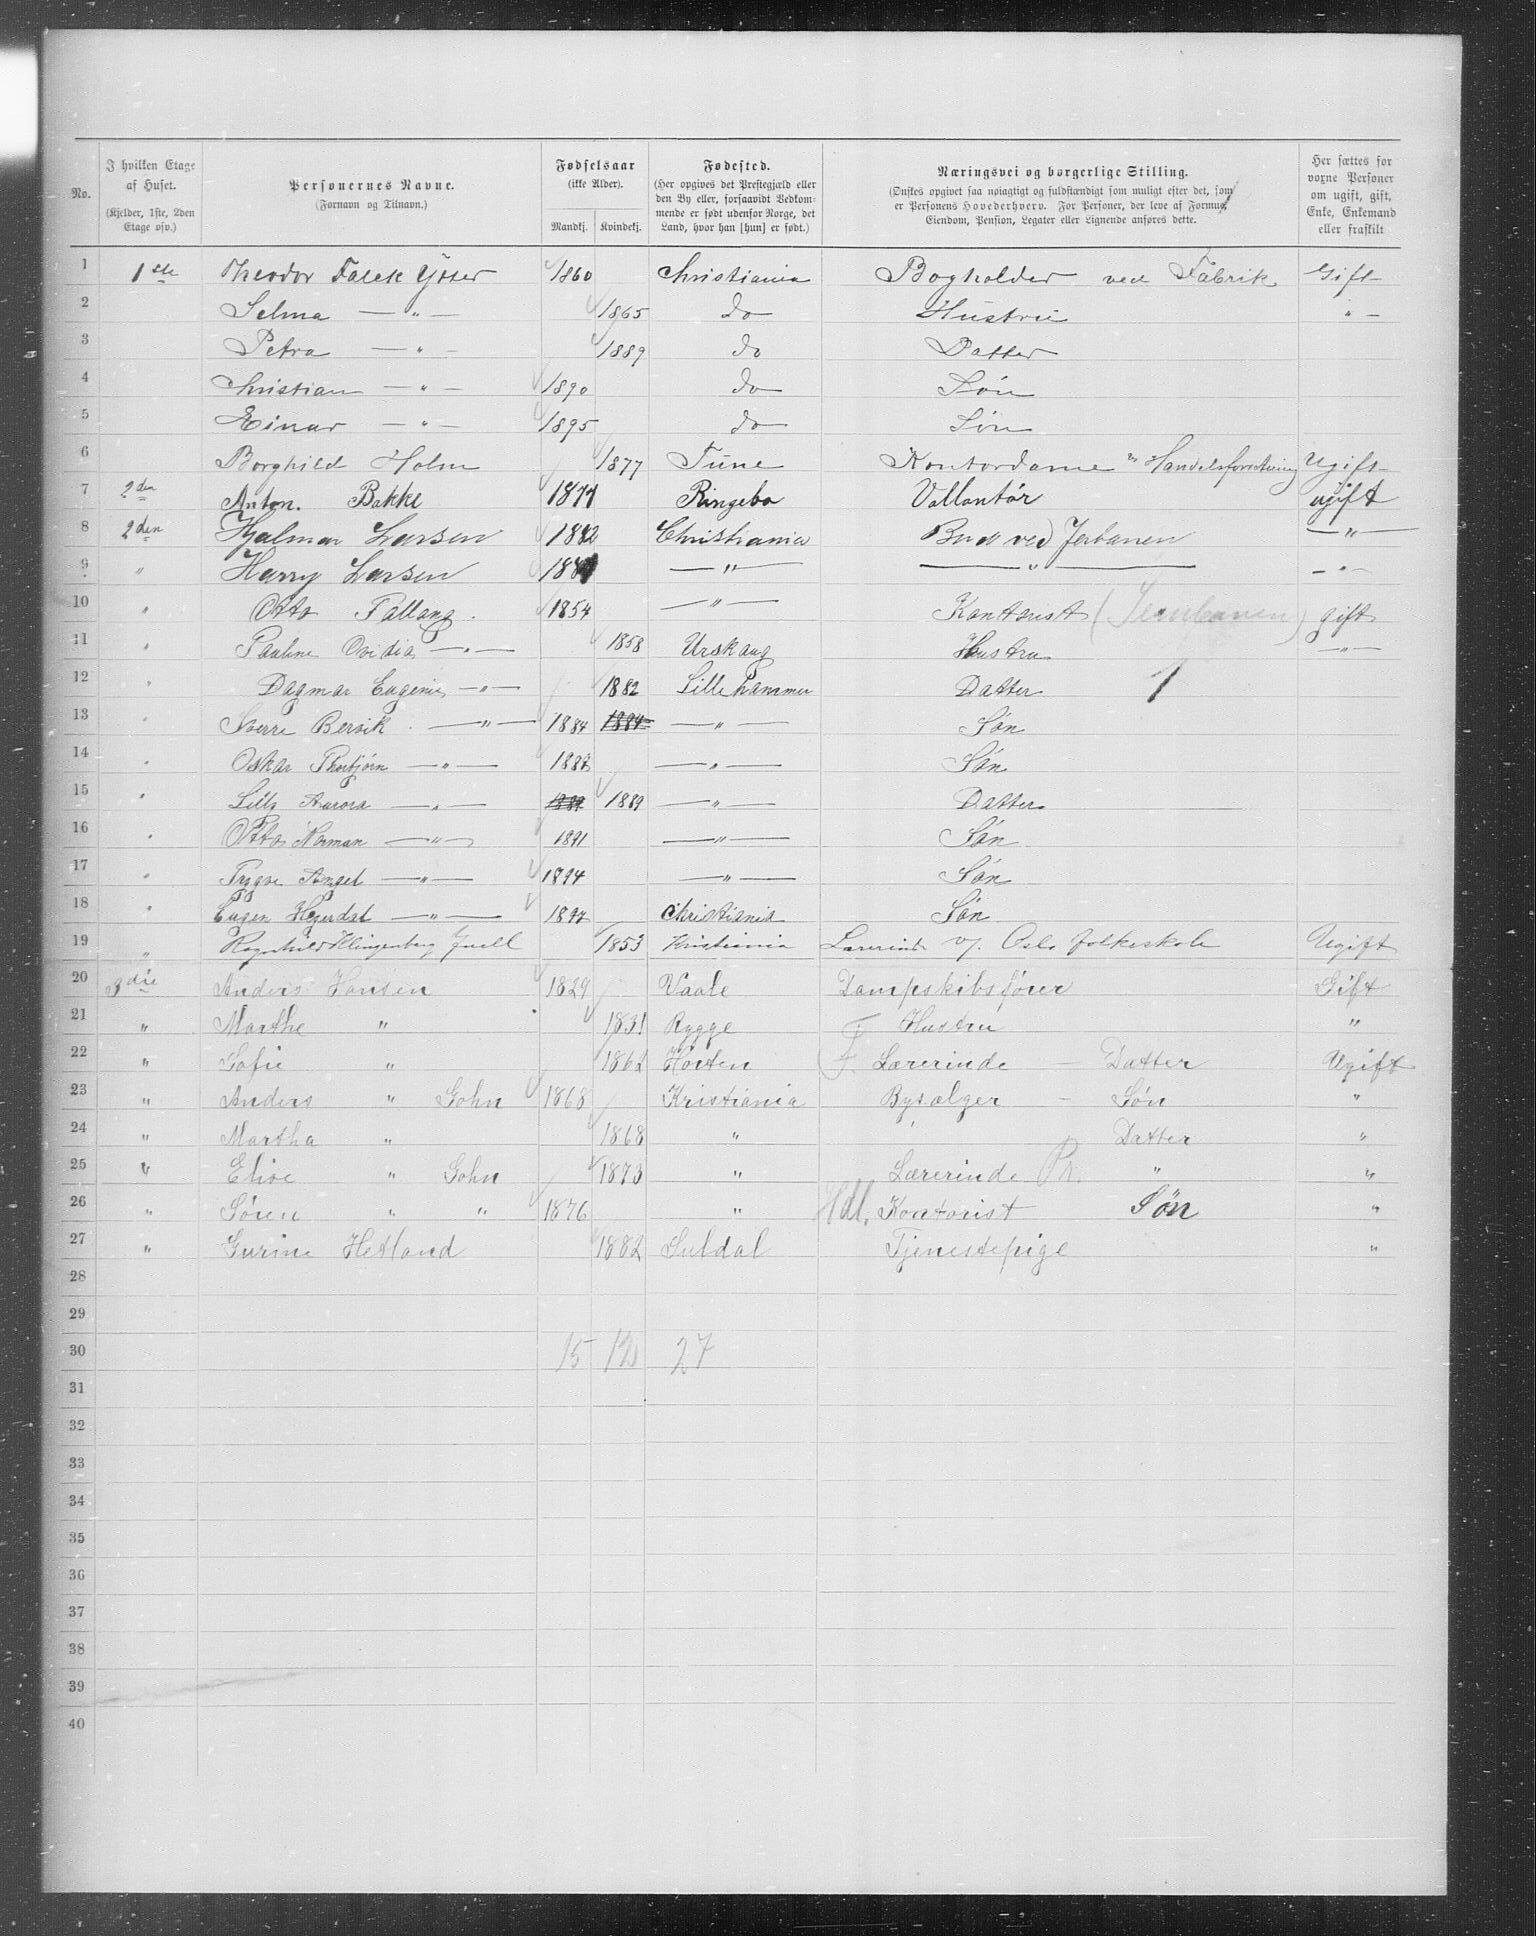 No. | I hvilken Etage af Huset. (Kjelder, 1ste, 2den Etage osv.) | Personernes Navne. (Fornavn og Tilnavn.) | Fødselsaar (ikke Alder). Mandkj. Kvindekj. | Fødested. (Her opgives det Præstegjæld eller den By eller, forsaavidt Vedkommende er født udenfor Norge, det Land, hvor han [hun] er født.) | Næringsvei og borgerlige Stilling. (Ønskes opgivet saa nøiagtigt og fuldstændigt som muligt efter det, som er Personens Hovederhverv. For Personer, der leve af Formue, Eiendom, Pension, Legater eller Lignende anføres dette.) | Her sættes for voxne Personer om ugift, gift, Enke, Enkemand eller fraskilt
1 1ste Theodor Falck 1860 Christiania Bogholder ved Fabrik Gift
2 Selma — " — 1865 do Hustru " —
3 Petra — " — 1889 do Datter
4 Christian — " — 1890 do Søn
5 Einar — " — 1895 do Søn
6 Borghild Holm 1877 Tune Kontordame " Handelsforretning Ugift
7 2den Anton. Bakke 1877 Ringebo Vollontør ugift
8 2den Hjalmar Larsen 1882 Christiania Bud ved Jerbanen — " —
9 " Harry Larsen — " — — " — — " —
10 " Otto Fallang. 1854 — " — Kontorist (Jernbanen) gift
11 " Pauline Ovidia — " — 1858 Urskaug Hustru — " —
12 " Dagmar Eugenie — " — 1882 Lillehammer Datter 1
13 " Sverre Bervik — " — 1884 1884 — " — Søn
14 " Oskar Thorbjørn — " — — " — Søn
15 " Lilly Aurora — " — 1889 1889 — " — Datter
16 " Otto Norman — " — 1891 — " — Søn
17 " Trygve Angel — " — 1894 — " — Søn
18 " Eugen Hejerdal — " — 1897 Christiania Søn
19 " Ragnhild Klingenberg Quell 1853 Kristiania Lærerinde v/. Oslo folkeskole Ugift
20 3die Anders Hansen 1829 Vaale Dampskibsfører Gift
21 " Marthe " 1831 Rygge F Hustru "
22 " Sofie " 1862 Horten F. Lærerinde — Datter Ugift
23 " Anders " Gohn 1868 Kristiania Bysælger — Søn "
24 " Martha " 1868 " Datter "
25 " Elise " Gohn 1873 " Lærerinde Pr. " "
26 " Søren " " 1876 " Hdl. Kontorist Søn "
27 " Gurine Hetland 1882 Suldal Tjenestepige "
28
29
30 15 12 27
31
32
33
34
35
36
37
38
39
40